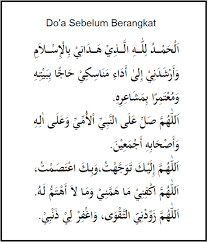 Do'a Sebelum Berangkat
اَلْحَمْدُ لِلّٰهِ الَّذِيْ هَدَانِيْ بِالْإِسْلَامِ
وَأَرْشَدَنِيْ إِلَى أَدَاءِ مَنَاسِكِيْ حَاجًّا بِبَيْتِهِ
وَمُعْتَمِرًا بِمَشَاعِرِهِ.
اَللّٰهُمَّ صَلِّ عَلَى النَّبِيِّ الْأُمِّيِّ وَعَلَى اٰلِهِ
وَأَصْحَابِهِ أَجْمَعِيْنَ.
اَللّٰهُمَّ إِلَيْكَ تَوَجَّهْتُ، وَبِكَ اعْتَصَمْتُ،
اَللّٰهُمَّ اكْفِنِيْ مَا هَمَّنِيْ وَمَا لَا أَهْتَمُّ لَهُ.
اَللّٰهُمَّ زَوِّدْنِيْ التَّقْوَى، وَاغْفِرْ لِيْ ذَنْبِيْ.